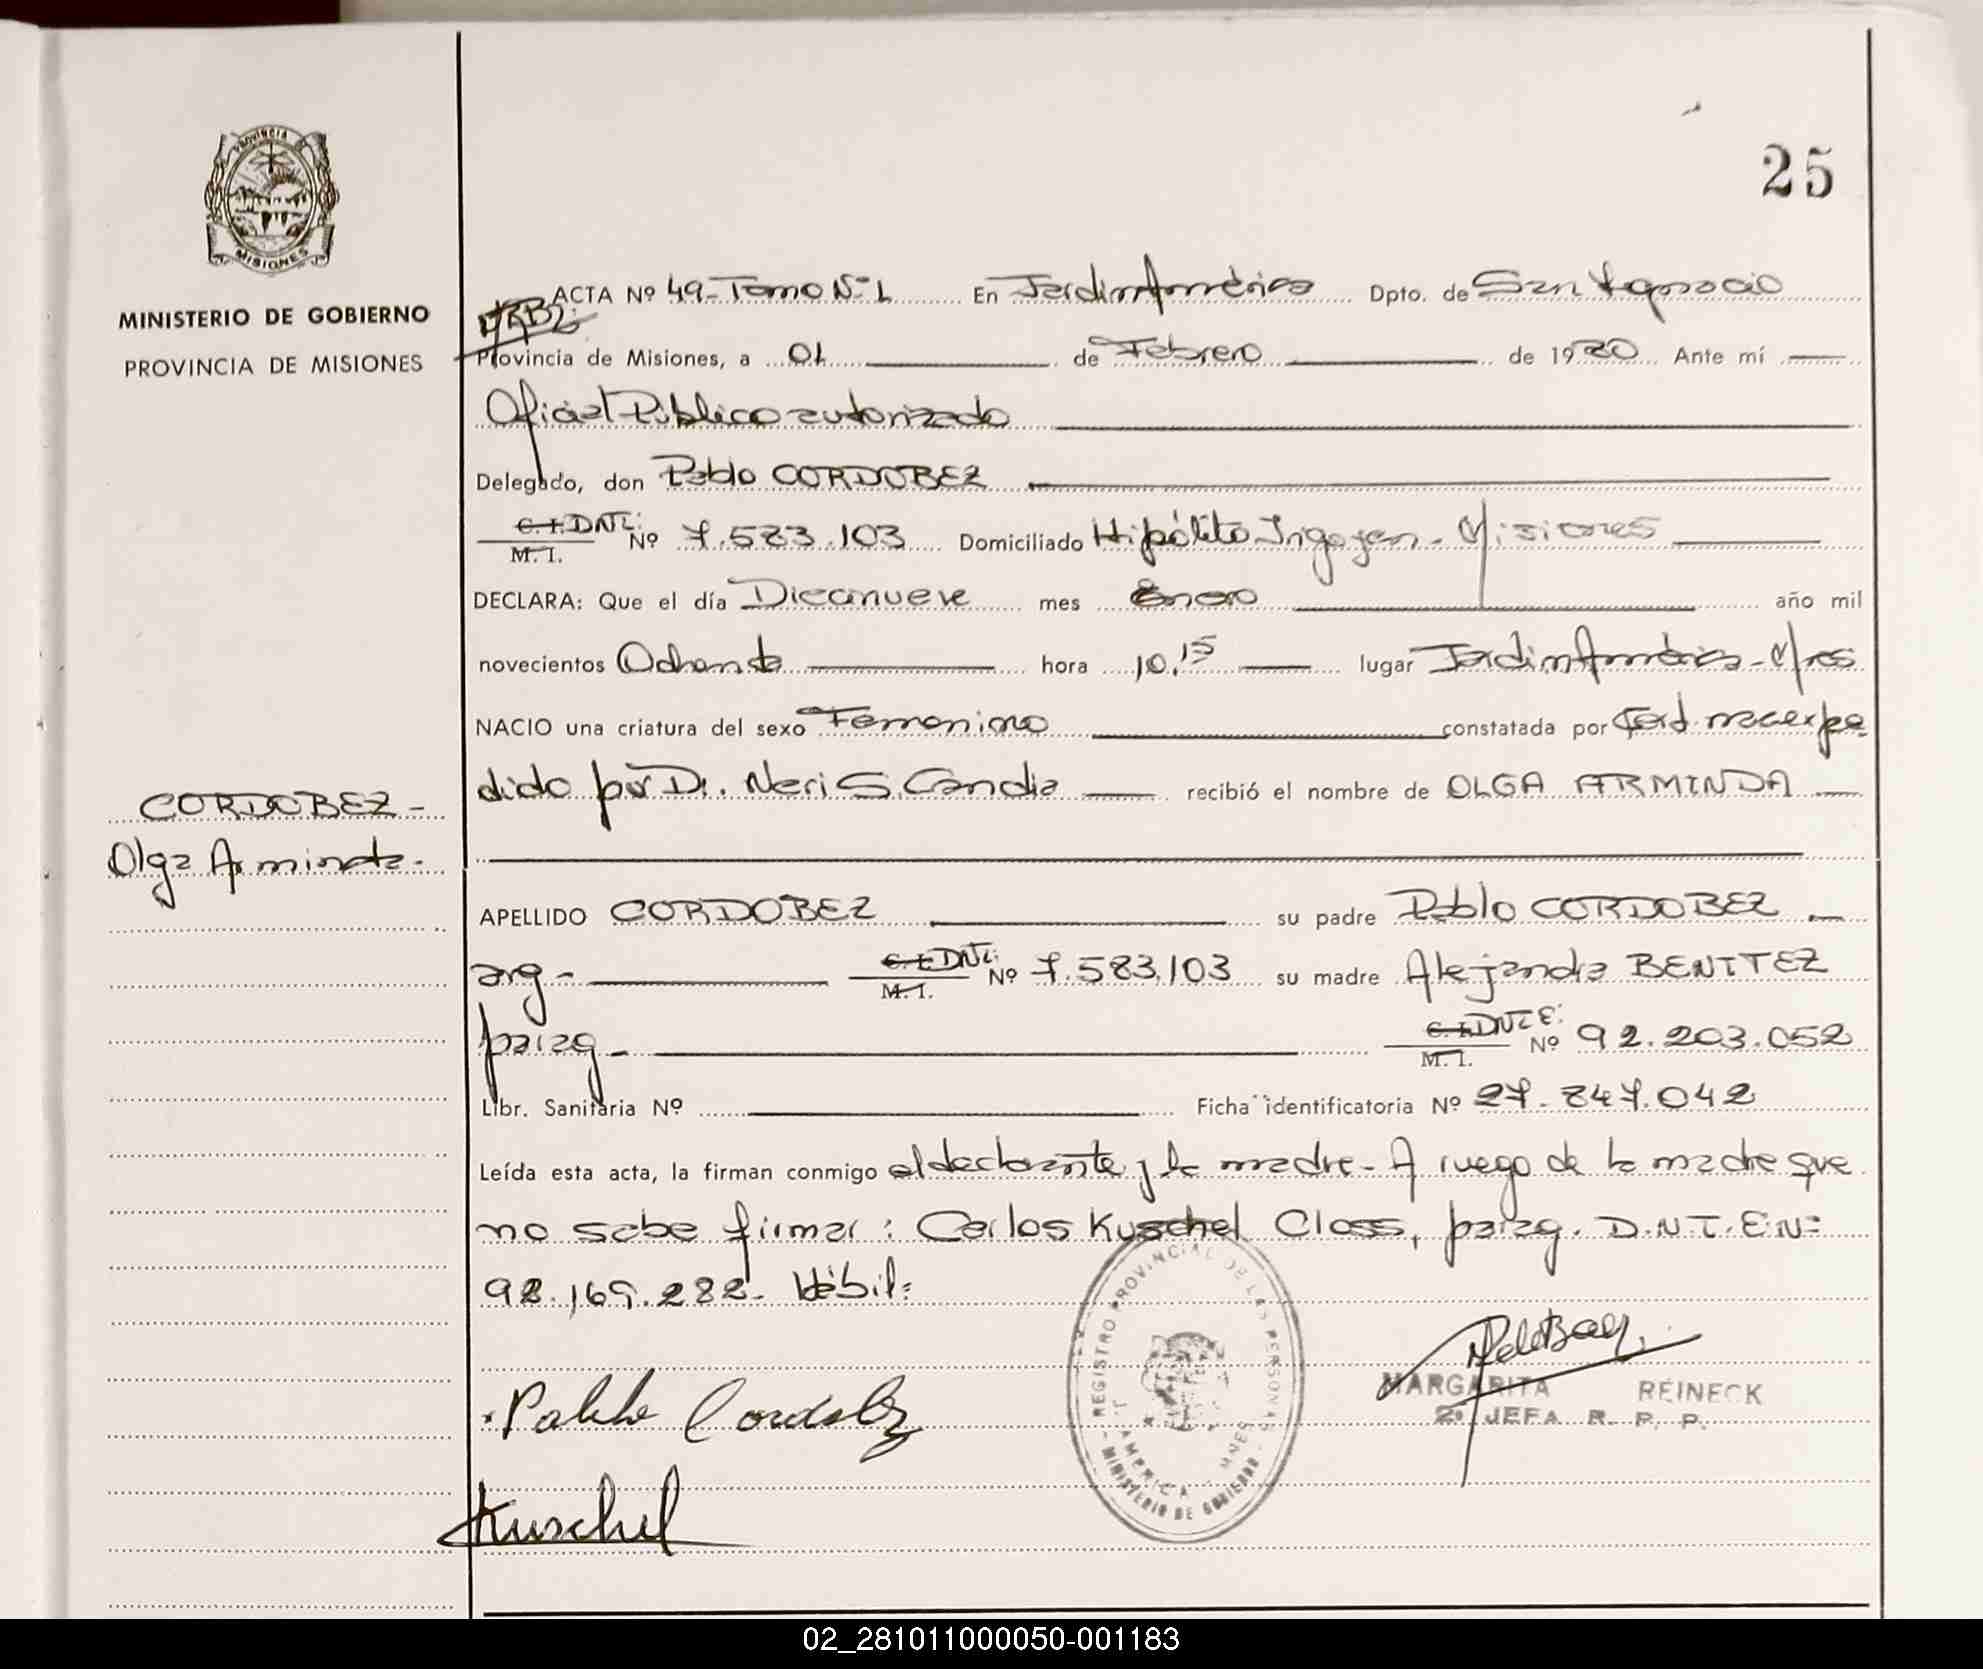 25
PROVINCIA
MISIONES
MINISTERIO DE GOBIERNO
PROVINCIA DE MISIONES
ACTA Nº 49-Tomo Nº 1 En Jardin América Dpto. de San Ignacio
Provincia de Misiones, a 01 de Febrero de 1980 Ante mí
Oficial Público autorizado
Delegado, don Pablo CORDOBEZ
C. I. DNI: M. I. Nº 7.583.103 Domiciliado Hipólito Irigoyen - Misiones
DECLARA: Que el día Diecinueve mes Enero año mil
novecientos Ochenta hora 10,15 lugar Jardin América - Mnes
NACIO una criatura del sexo Femenino constatada por Cert. med. expe
dido por Dr. Neri S. Candia recibió el nombre de OLGA ARMINDA
CORDOBEZ -
Olga Arminda -
APELLIDO CORDOBEZ su padre Pablo CORDOBEZ
arg - C. I. DNI: M. I. Nº 7.583.103 su madre Alejandra BENITEZ
parag - C. I. DNIE: M. I. Nº 92.203.052
Libr. Sanitaria Nº Ficha identificatoria Nº 27.847.042
Leída esta acta, la firman conmigo el declarante y la madre - A ruego de la madre que
no sabe firmar : Carlos Kuschel Class, parag. D.N.I.E.Nº
92.169.282 - Hábil:
REGISTRO PROVINCIAL DE LAS PERSONAS
J. AMERICA MNES
MINISTERIO DE GOBIERNO
MARGARITA REINECK
2º JEFA R. P. P.
Pablo Cordobez
Kuschel
02_281011000050-001183